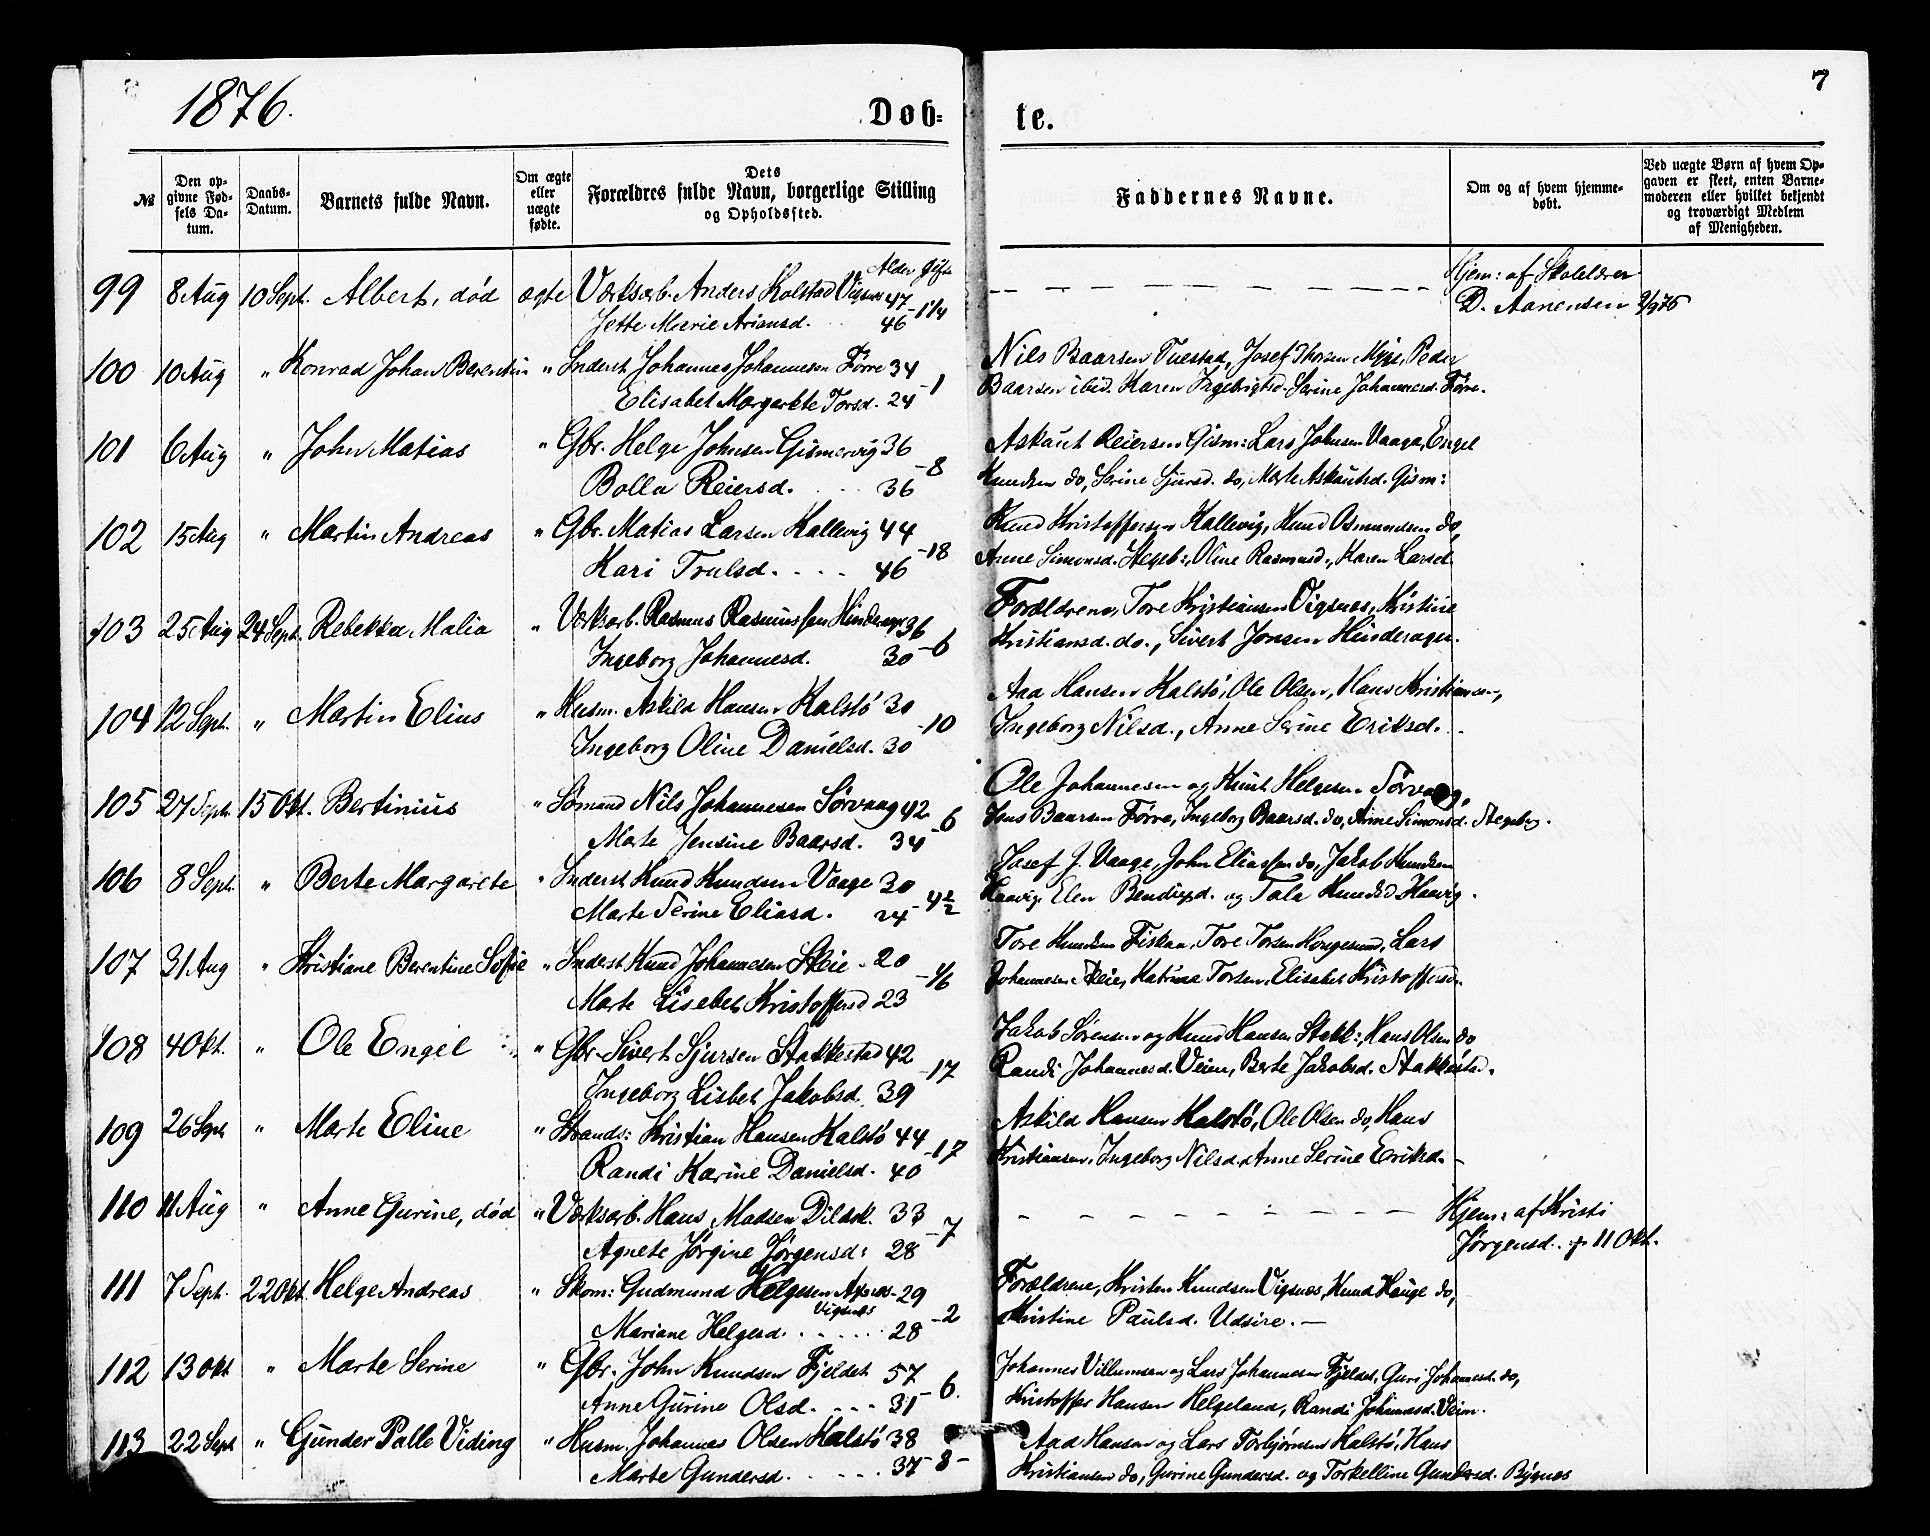 1876.
Døb-
te.
7
№
Den op-
givne Fød-
sels Da-
tum.
Daabs-
Datum.
Barnets fulde Navn.
Om ægte
eller
uægte
fødte.
Dets
Forældres fulde Navn, borgerlige Stilling
og Opholdssted.
Faddernes Navne.
Om og af hvem hjemme-
døbt.
Ved uægte Børn af hvem Op-
gaven er skeet, enten Barne-
moderen eller hvilket bekjendt
og troværdigt Medlem
af Menigheden.
Alder Gifte
99 8 Aug 10 Sept. Albert, død ægte Værksarb. Anders Kolstad Vigsnes 47 Hjem: af Skolelærer
Jette Marie Ariansd. 46 - 1 1/4 D. Aanensen 2/9 76
100 10 Aug " Konrad Johan Berentin " Inderst Johannes Johannesen Førre 34 Nils Baarsen Tuestad, Josef Thorsen Peder
Elisabet Margarete Torsd. 24 - 1 Baarsen ibid. Karen Ingebrigtsd. Serine Johannesd. Førre.
101 6 Aug " John Matias " Gbr. Helge Johnsen Gismervig 36 Askaut Reiersen Gism: Lars Johnsen Vaaga, Engel
Bolla Reiersd. 36 - 8 Knudsen do, Serine Sjursd. do, Marte Askautsd. Gism:
102 15 Aug " Martin Andreas " Gbr. Matias Larsen Kallevig 44 Knud Kristoffersen Kallevig, Knud Osmundsen do,
Kari Trulsd. 46 - 18 Anne Simonsd. Stegeb:, Oline Rasmusd., Karen Larsd.
103 25 Aug 24 Sept. Rebekka Malia " Værksarb. Rasmus Rasmussen Hinderager 36 Forældrene, Tore Kristiansen Vigsnes, Kristine
Ingeborg Johannesd. 30 - 6 Kristiansd. do., Sivert Jonsen Hinderager.
104 12 Sept. " Martin Elius " Husm. Askild Hansen Kalstø 30 Aad Hansen Kalstø, Ole Olsen, Hans Kristiansen,
Ingeborg Oline Danielsd. 30 - 10 Ingeborg Nilsd., Anne Serine Eriksd.
105 27 Sept. 15 Okt. Bertinius " Sømand Nils Johannesen Sørvaag 42 Ole Johannesen og Knut Helgesen Sørvaag,
Marte Jensine Baarsd. 34 - 6 Jens Baarsen Førre, Ingeborg Baarsd. do, Anne Simonsd. Stegeberg.
106 8 Sept. " Berte Margarete " Inderst Knud Knudsen Vaage 30 Josef J. Vaage, John Eliassen do, Jakob Knudsen
Marte Serine Eliasd. 24 - 4 1/2 Haavig, Elen Bendixd. og Tala Knudsd Haavig.
107 31 Aug " Kristiane Berentine Sofie " Inderst Knud Johannesen Skeie 20 Tore Knudsen Fiskaa, Tore Torsen Hougesund, Lars
Marte Lisebet Kristoffersd 23 - 1/6 Johannesen Skeie, Katrine Torsen, Elisabet Kristoffersd.
108 4 Okt. " Ole Engel " Gbr. Sivert Sjursen Stakkestad 42 Jakob Sørensen og Knud Hansen Stakk:, Hans Olsen do
Ingeborg Lisbet Jakobsd. 39 - 17 Randi Johannesd. Veim, Berte Jakobsd. Stakkestad.
109 26 Sept " Marte Eline " Strands: Kristian Hansen Kalstø 44 Askild Hansen Kalstø, Ole Olsen do, Hans
Randi Karine Danielsd. 40 - 17 Kristiansen, Ingeborg Nilsd. Anne Serine Eriksd.
110 11 Aug " Anne Gurine, død " Værksarb. Hans Madsen 33 Hjem: af Kristi
Agnete Jørgine Jørgensd: 28 - 7 Jørgensd. † 11 Okt.
111 7 Sept. 22 Okt. Helge Andreas " Skom: Gudmund Helgesen 29 Forældrene, Kristen Knudsen Vigsnes, Knud Hauge do,
Vigsnes
Mariane Helgesd. 28 - 2 Kristine Paulsd. Udsire.
112 13 Okt " Marte Serine " Gbr. John Knudsen Fjeldet 57 Johannes Villumsen og Lars Johannesen Fjeldet, Guri Johannesd. do,
Anne Gurine Olsd. 31 - 6. Kristoffer Hansen Helgeland, Randi Johannesd. Veim.
113 22 Sept " Gunder Palle Viding " Husm. Johannes Olsen Kalstø 38 Aad Hansen og Lars Torbjørnsen Kalstø, Hans
Marte Gundersd. 37 - 8 - Kristiansen do, Gurine Gundersd. og Torkelline Gundersd. Bygnes